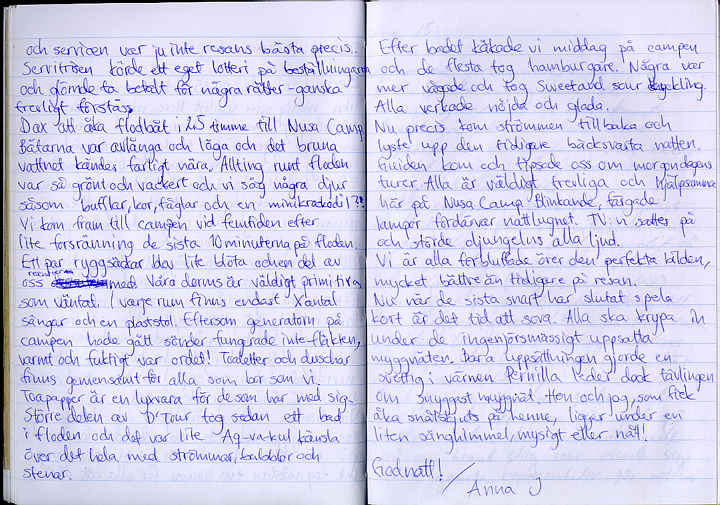 och servicen var ju inte resans bästa precis..
Servitrisen körde ett eget lotteri på beställningarna
och glömde ta betalt för några rätter - ganska
trevligt förståss
Dax att åka flodbåt i 2,5 timme till Nusa Camp
Båtarna var avlånga och låga och det bruna
vattnet kändes farligt nära. Allting runt floden
var så grönt och vackert och vi såg några djur
såsom bufflar, kor, fåglar och en minikrokodil?!
Vi kom fram till campen vid femtiden efter
lite försränning de sista 10 minuterna på floden.
Ett par ryggsäckar blev lite blöta och en del av
oss med. Våra dorms är väldigt primitiva
som väntat. I varje rum finns endast X antal
sängar och en plaststol. Eftersom generatorn på
campen hade gått sönder fungrade inte fläkten,
varmt och fuktigt var ordet! Toaletter och duschar
finns gemensamt för alla som bor som vi.
Toapapper är en lyxvara för de som har med sig.
Större delen av D'Tour tog sedan ett bad
i floden och det var lite Äg-va-kul känsla
över det hela med strömmar, bubblor och
stenar.
Efter badet käkade vi middag på campen
och de flesta tog hamburgare. Några var
mer vågade och tog Sweet and sour kyckling.
Alla verkade nöjda och glada.
Nu precis kom strömmen tillbaka och
lyste upp den tidigare bäcksvarta natten.
Guiden kom och tipsade oss om morgondagens
turer. Alla är väldigt trevliga och hjälpsamma
här på Nusa Camp. Blinkande, färgade
lampor fördärvar nattlugnet. TV:n sattes på
och störde djungelns alla ljud.
Vi är alla förbluffade över den perfekta bilden,
mycket bättre än tidigare på resan.
Nu när de sista snart har slutat spela
kort är det tid att sova. Alla ska krypa in
under de ingenjörsmässigt uppsatta
myggnäten. Bara uppsättningen gjorde en
svettig i värmen. Pernilla leder dock tävlingen
om snyggast myggnät. Hon och jag, som fick
åka snålskjuts på henne, ligger under en
liten sänghimmel, mysigt eller nåt!
Godnatt!
/ Anna J